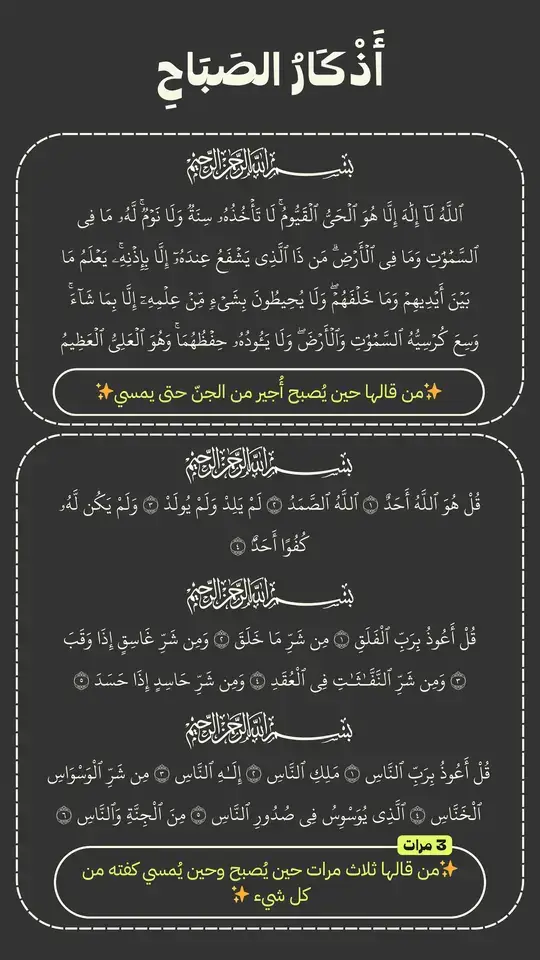 أَذْكَارُ الصَبَاحِ
بِسْمِ اللَّهِ الرَّحْمَٰنِ الرَّحِيمِ
اَللَّهُ لَآ إِلَٰهَ إِلَّا هُوَ اَلْحَيُّ اُلْقَيُّومُۚ لَا تَأْخُذُهُۥ سِنَةٌ وَلَا نَوْمٌۚ لَّهُۥ مَا فِى
اَلسَّمَٰوَٰتِ وَمَا فِى اَلْأَرْضِۗ مَن ذَا اَلَّذِى يَشْفَعُ عِندَهُۥٓ إِلَّا بِإِذْنِهِۦۚ يَعْلَمُ مَا
بَيْنَ أَيْدِيهِمْ وَمَا خَلْفَهُمْۖ وَلَا يُحِيطُونَ بِشَىْءٍ مِّنْ عِلْمِهِۦٓ إِلَّا بِمَا شَآءَۚ
وَسِعَ كُرْسِيُّهُ اُلسَّمَٰوَٰتِ وَاَلْأَرْضَۖ وَلَا يَـُٔودُهُۥ حِفْظُهُمَاۚ وَهُوَ اَلْعَلِىُّ اُلْعَظِيمُ
✨من قالها حين يُصبح أُجير من الجنّ حتى يمسي✨
بِسْمِ اللَّهِ الرَّحْمَٰنِ الرَّحِيمِ
قُلْ هُوَ اَللَّهُ أَحَدٌ ١ اَللَّهُ اُلصَّمَدُ ٢ لَمْ يَلِدْ وَلَمْ يُولَدْ ٣ وَلَمْ يَكُن لَّهُۥ
كُفُوًا أَحَدٌۢ ٤
بِسْمِ اللَّهِ الرَّحْمَٰنِ الرَّحِيمِ
قُلْ أَعُوذُ بِرَبِّ اِلْفَلَقِ ١ مِن شَرِّ مَا خَلَقَ ٢ وَمِن شَرِّ غَاسِقٍ إِذَا وَقَبَ
٣ وَمِن شَرِّ اِلنَّفَّـٰثَـٰتِ فِى اِلْعُقَدِ ٤ وَمِن شَرِّ حَاسِدٍ إِذَا حَسَدَ ٥
بِسْمِ اللَّهِ الرَّحْمَٰنِ الرَّحِيمِ
قُلْ أَعُوذُ بِرَبِّ اِلنَّاسِ ١ مَلِكِ اِلنَّاسِ ٢ إِلَـٰهِ اِلنَّاسِ ٣ مِن شَرِّ اِلْوَسْوَاسِ
اِلْخَنَّاسِ ٤ اَلَّذِى يُوَسْوِسُ فِى صُدُورِ اِلنَّاسِ ٥ مِنَ اَلْجِنَّةِ وَاَلنَّاسِ ٦
3 مرات
✨من قالها ثلاث مرات حين يُصبح وحين يُمسي كفته من
كل شيء ✨